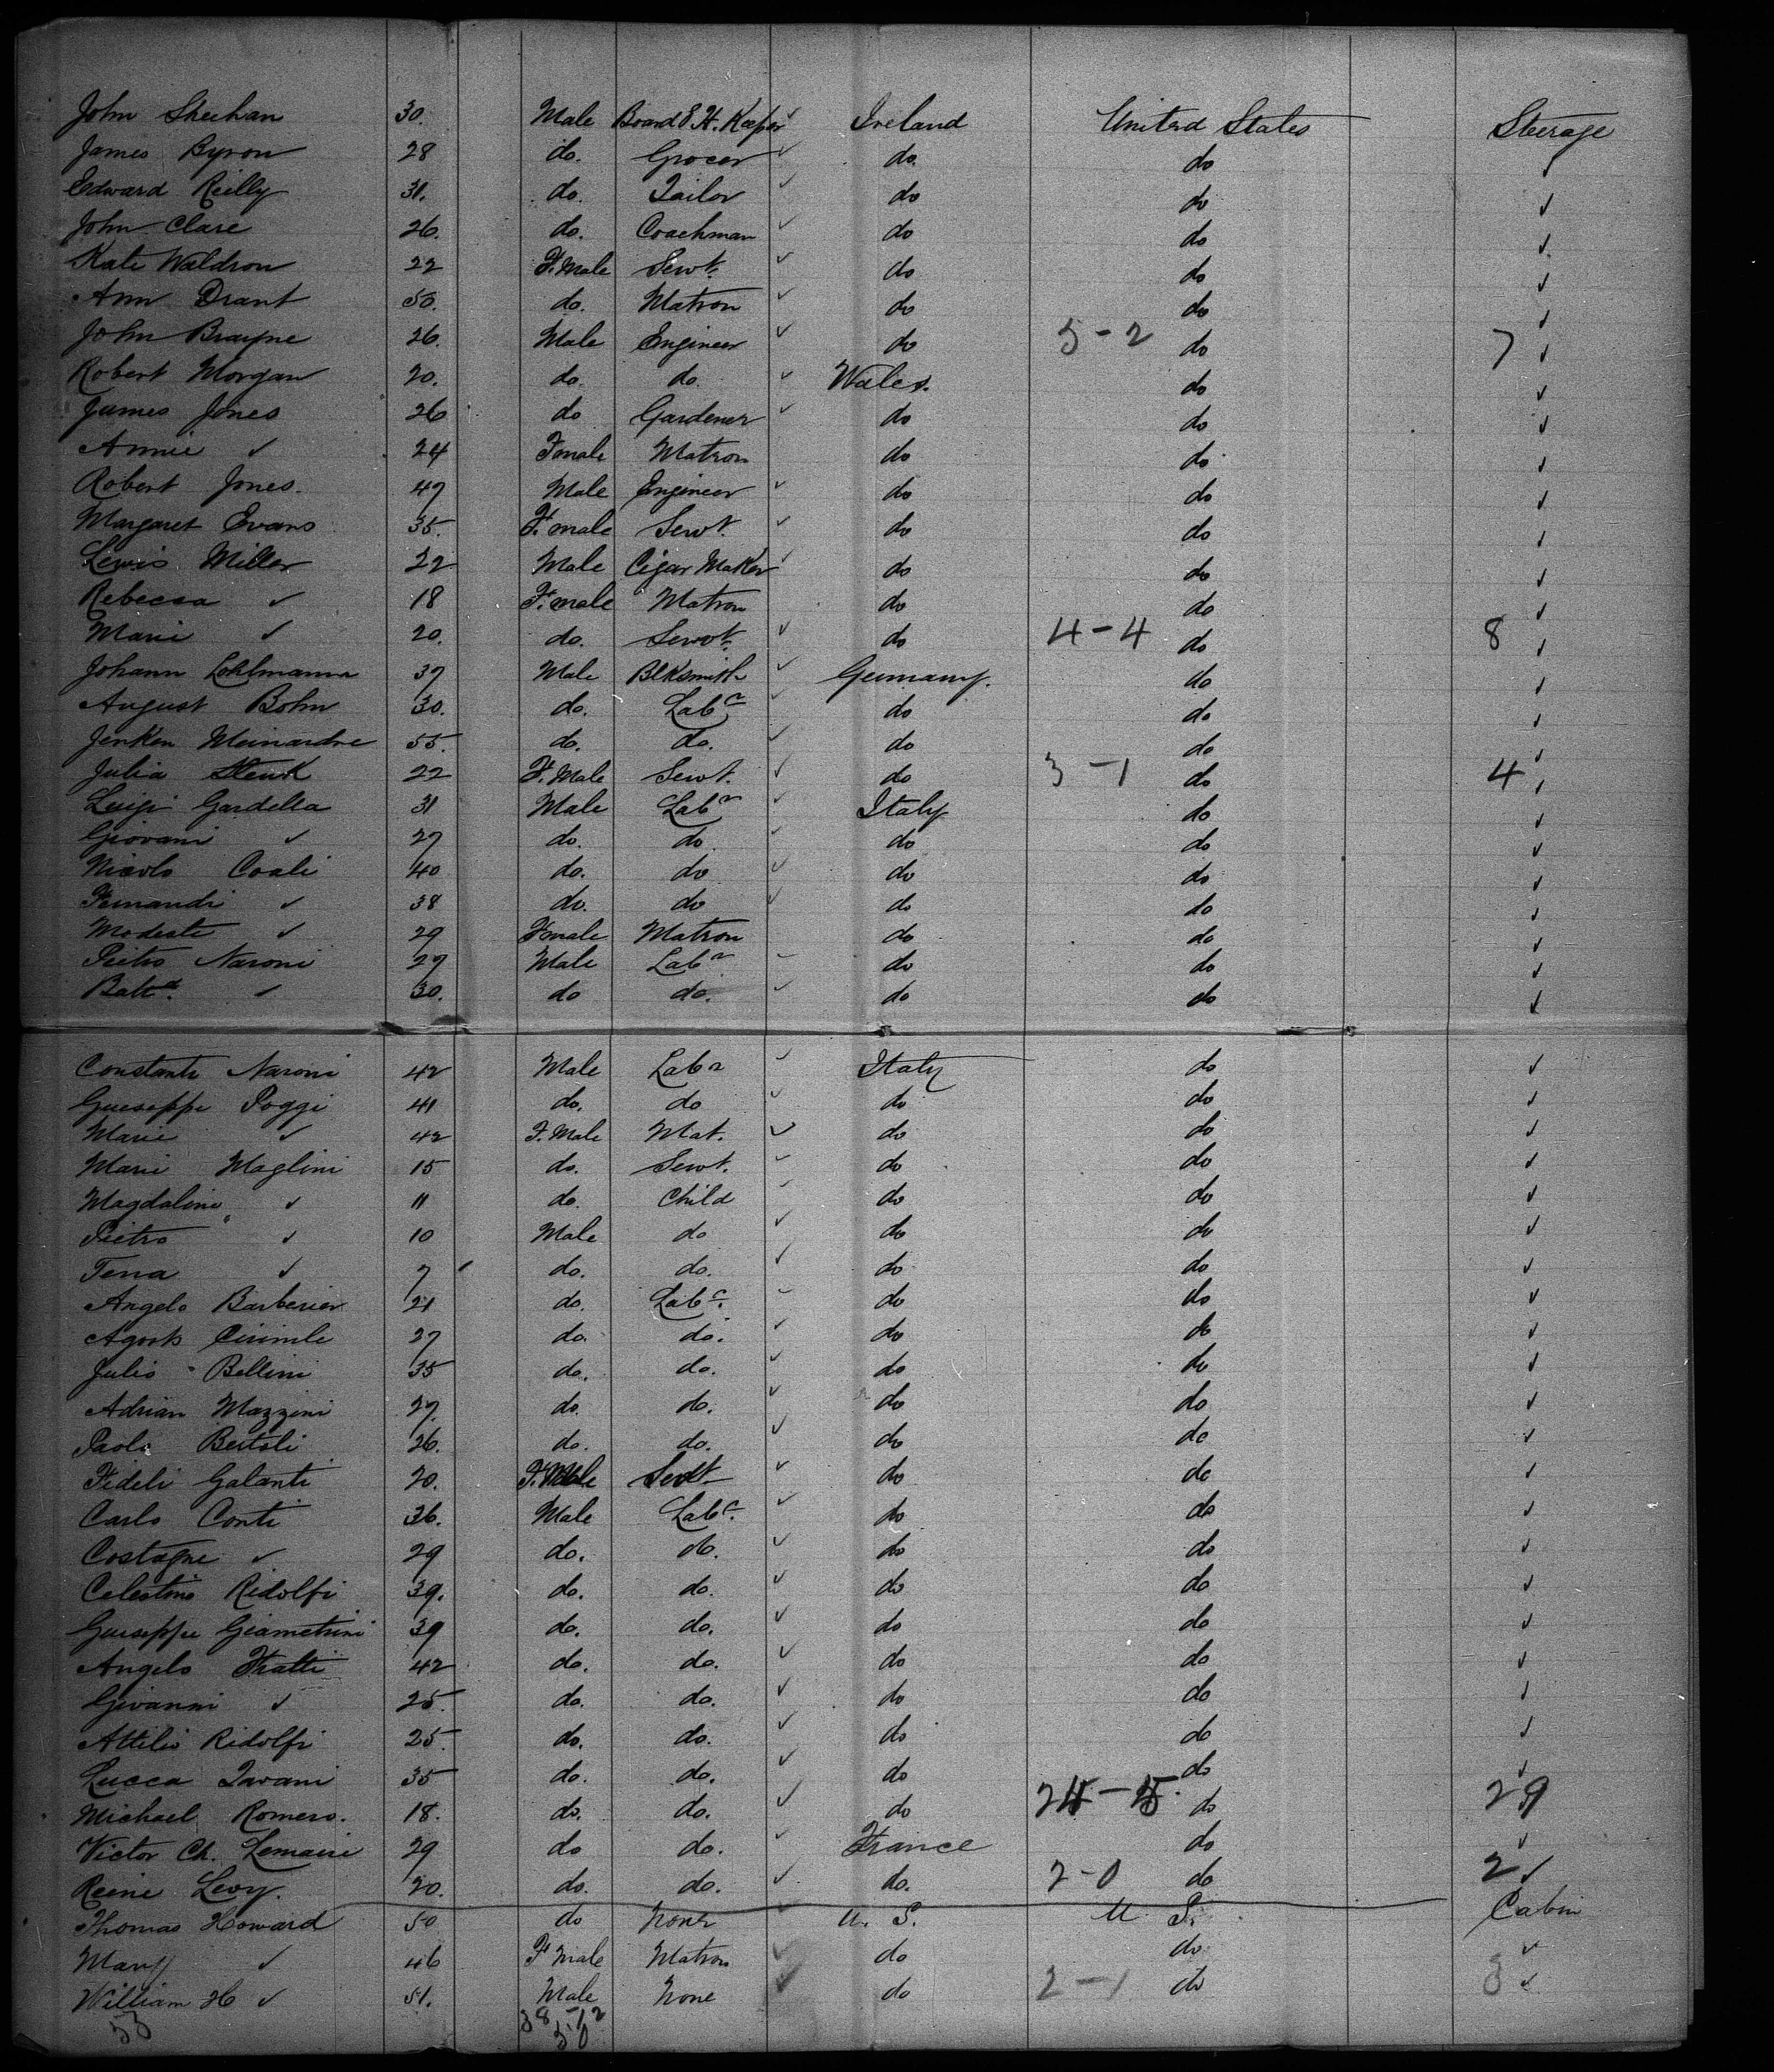 John Sheehan 30. Male Board & H. Keeper ✓ Ireland United States Steerage
James Byron 28 do. Grocer ✓ do. do ✓
Edward Reilly 31. do. Tailor ✓ do do ✓
John Clare 26. do. Coachman ✓ do do ✓
Kate Waldron 22 F. Male Servt. ✓ do do ✓
Ann Drant 50. do. Matron ✓ do do ✓
John Brayne 26. Male Engineer ✓ do 5-2 do 7 ✓
Robert Morgan 20. do. do. ✓ Wales. do ✓
James Jones 26 do Gardener ✓ do do ✓
Annie ✓ 24 Female Matron do do ✓
Robert Jones. 47 Male Engineer ✓ do do ✓
Margaret Evans 35. F. male Servt. ✓ do do ✓
Lewis Miller 22 Male Cigar Maker ✓ do do ✓
Rebecca ✓ 18 F. male Matron do do ✓
Marie ✓ 20. do. Servt. ✓ do 4-4 do 8 ✓
Johann Lohlmann 37 Male Blksmith ✓ Germany. do ✓
August Bohn 30. do. Labr ✓ do do ✓
Jenken Meinardne 55. do. do. ✓ do do ✓
Julia 22 F. Male Servt. ✓ do 3-1 do 4 ✓
Luigi Gardella 31 Male Labr ✓ Italy do ✓
Giovani ✓ 27 do. do ✓ do do ✓
Nicolo Coali 40 do. do ✓ do do ✓
Fernandi ✓ 38 do. do ✓ do do ✓
Modeste ✓ 29 Female Matron do do ✓
Pietro Naroni 27 Male Labr ✓ do do ✓
Batta. ✓ 30. do do. ✓ do do ✓
Constante Naroni 42 Male Labr ✓ Italy do ✓
Gueseppe Poggi 41 do. do ✓ do do ✓
Marie ✓ 42 F. Male Mat. ✓ do do ✓
Marie Maglini 15 do. Servt. ✓ do do ✓
Magdalina ✓ 11 do. Child ✓ do do ✓
Pietro ✓ 10 Male do ✓ do do ✓
Tena ✓ 7 do. do. ✓ do do ✓
Angelo Barberier 21 do. Labr. ✓ do do ✓
27 do. do. ✓ do do ✓
Julio Bellini 35 do. do. ✓ do do ✓
Adrian Mazzini 27. do. do. ✓ do do ✓
Paolo Bertoli 26. do. do. ✓ do do ✓
Fideli Galanti 20. F. Male Servt ✓ do do ✓
Carlo Conti 36. Male Labr. ✓ do do ✓
Costagne ✓ 29 do. do. ✓ do do ✓
Celestino Ridolfi 39. do. do. ✓ do do ✓
Gueseppe Giametrini 39 do. do. ✓ do do ✓
Angelo Fratti 42 do. do. ✓ do do ✓
Givanni ✓ 25. do. do. ✓ do do ✓
Attilio Ridolfi 25. do. do. ✓ do do ✓
Lucca Tavani 35 do. do. ✓ do do ✓
Michael Romero. 18. do. do. ✓ do 24-5 do 29
Victor Ch. Lemaire 29 do do. ✓ France do ✓
Reine Levy. 20. do. do. ✓ do. 2-0 do 2 ✓
Thomas Howard 50 do None ✓ U. S. U. S. Cabin
Mary ✓ 46 F male Matron ✓ do do ✓
William H ✓ 51. Male None ✓ do 2-1 do 3 ✓
53 38-12
50